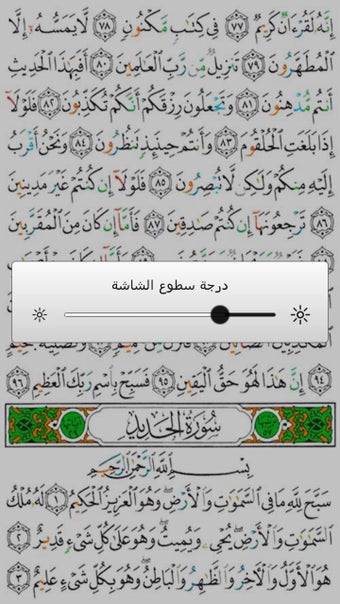 إِنَّهُ لَقُرْءَانٌ كَرِيمٌ ﴿٧٧﴾ فِى كِتَٰبٍ مَّكْنُونٍ ﴿٧٨﴾ لَّا يَمَسُّهُۥٓ إِلَّا
ٱلْمُطَهَّرُونَ ﴿٧٩﴾ تَنزِيلٌ مِّن رَّبِّ ٱلْعَٰلَمِينَ ﴿٨٠﴾ أَفَبِهَٰذَا ٱلْحَدِيثِ
أَنتُم مُّدْهِنُونَ ﴿٨١﴾ وَتَجْعَلُونَ رِزْقَكُمْ أَنَّكُمْ تُكَذِّبُونَ ﴿٨٢﴾ فَلَوْلَآ
إِذَا بَلَغَتِ ٱلْحُلْقُومَ ﴿٨٣﴾ وَأَنتُمْ حِينَئِذٍ تَنظُرُونَ ﴿٨٤﴾ وَنَحْنُ أَقْرَبُ
إِلَيْهِ مِنكُمْ وَلَٰكِن لَّا تُبْصِرُونَ ﴿٨٥﴾ فَلَوْلَآ إِن كُنتُمْ غَيْرَ مَدِينِينَ
﴿٨٦﴾ تَرْجِعُونَهَآ إِن كُنتُمْ صَٰدِقِينَ ﴿٨٧﴾ فَأَمَّآ إِن كَانَ مِنَ ٱلْمُقَرَّبِينَ
درجة سطوع الشاشة
﴿٩٤﴾ إِنَّ هَٰذَا لَهُوَ حَقُّ ٱلْيَقِينِ ﴿٩٥﴾ فَسَبِّحْ بِٱسْمِ رَبِّكَ ٱلْعَظِيمِ ﴿٩٦﴾
سُورَةُ الحَدِيدِ
بِسْمِ ٱللَّهِ ٱلرَّحْمَٰنِ ٱلرَّحِيمِ
سَبَّحَ لِلَّهِ مَا فِى ٱلسَّمَٰوَٰتِ وَٱلْأَرْضِ وَهُوَ ٱلْعَزِيزُ ٱلْحَكِيمُ ﴿١﴾ لَهُۥ مُلْكُ
ٱلسَّمَٰوَٰتِ وَٱلْأَرْضِ يُحْىِۦ وَيُمِيتُ وَهُوَ عَلَىٰ كُلِّ شَىْءٍ قَدِيرٌ ﴿٢﴾
هُوَ ٱلْأَوَّلُ وَٱلْءَاخِرُ وَٱلظَّٰهِرُ وَٱلْبَاطِنُ وَهُوَ بِكُلِّ شَىْءٍ عَلِيمٌ ﴿٣﴾